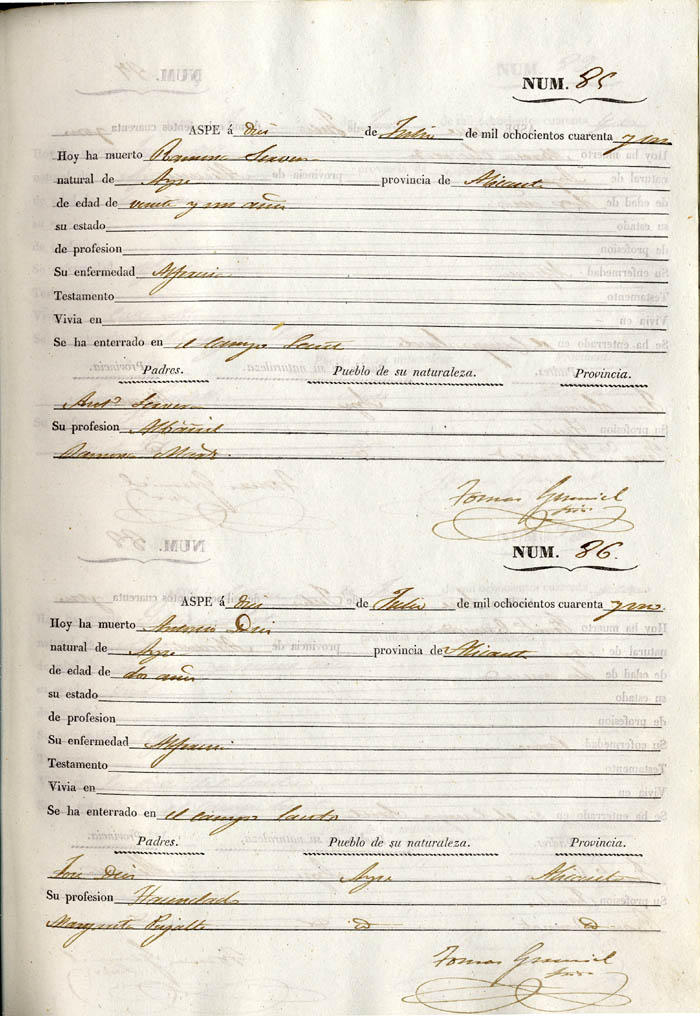 NUM. 85
ASPE á diez de Julio de mil ochocientos cuarenta y uno
Hoy ha muerto Ramona
natural de Aspe provincia de Alicante
de edad de veinte y un años
su estado
de profesion
Su enfermedad
Testamento
Vivia en
Se ha enterrado en el campo Santo
Padres. Pueblo de su naturaleza. Provincia.
Antº
Su profesion Albañil
Ramona
Tomas
NUM. 86.
ASPE á diez de Julio de mil ochocientos cuarenta y uno
Hoy ha muerto Antonio
natural de Aspe provincia de Alicante
de edad de dos años
su estado
de profesion
Su enfermedad
Testamento
Vivia en
Se ha enterrado en el campo Santo
Padres. Pueblo de su naturaleza. Provincia.
Jose Aspe Alicante
Su profesion Hacendado
Margarita
Tomas